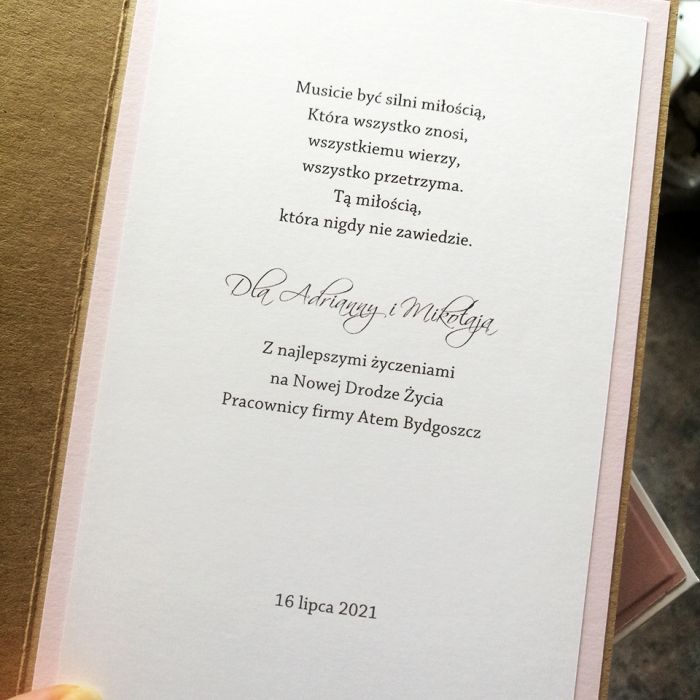 Musicie być silni miłością,
Która wszystko znosi,
wszystkiemu wierzy,
wszystko przetrzyma.
Tą miłością,
która nigdy nie zawiedzie.
Dla Adrianny i Mikołaja
Z najlepszymi życzeniami
na Nowej Drodze Życia
Pracownicy firmy Atem Bydgoszcz
16 lipca 2021